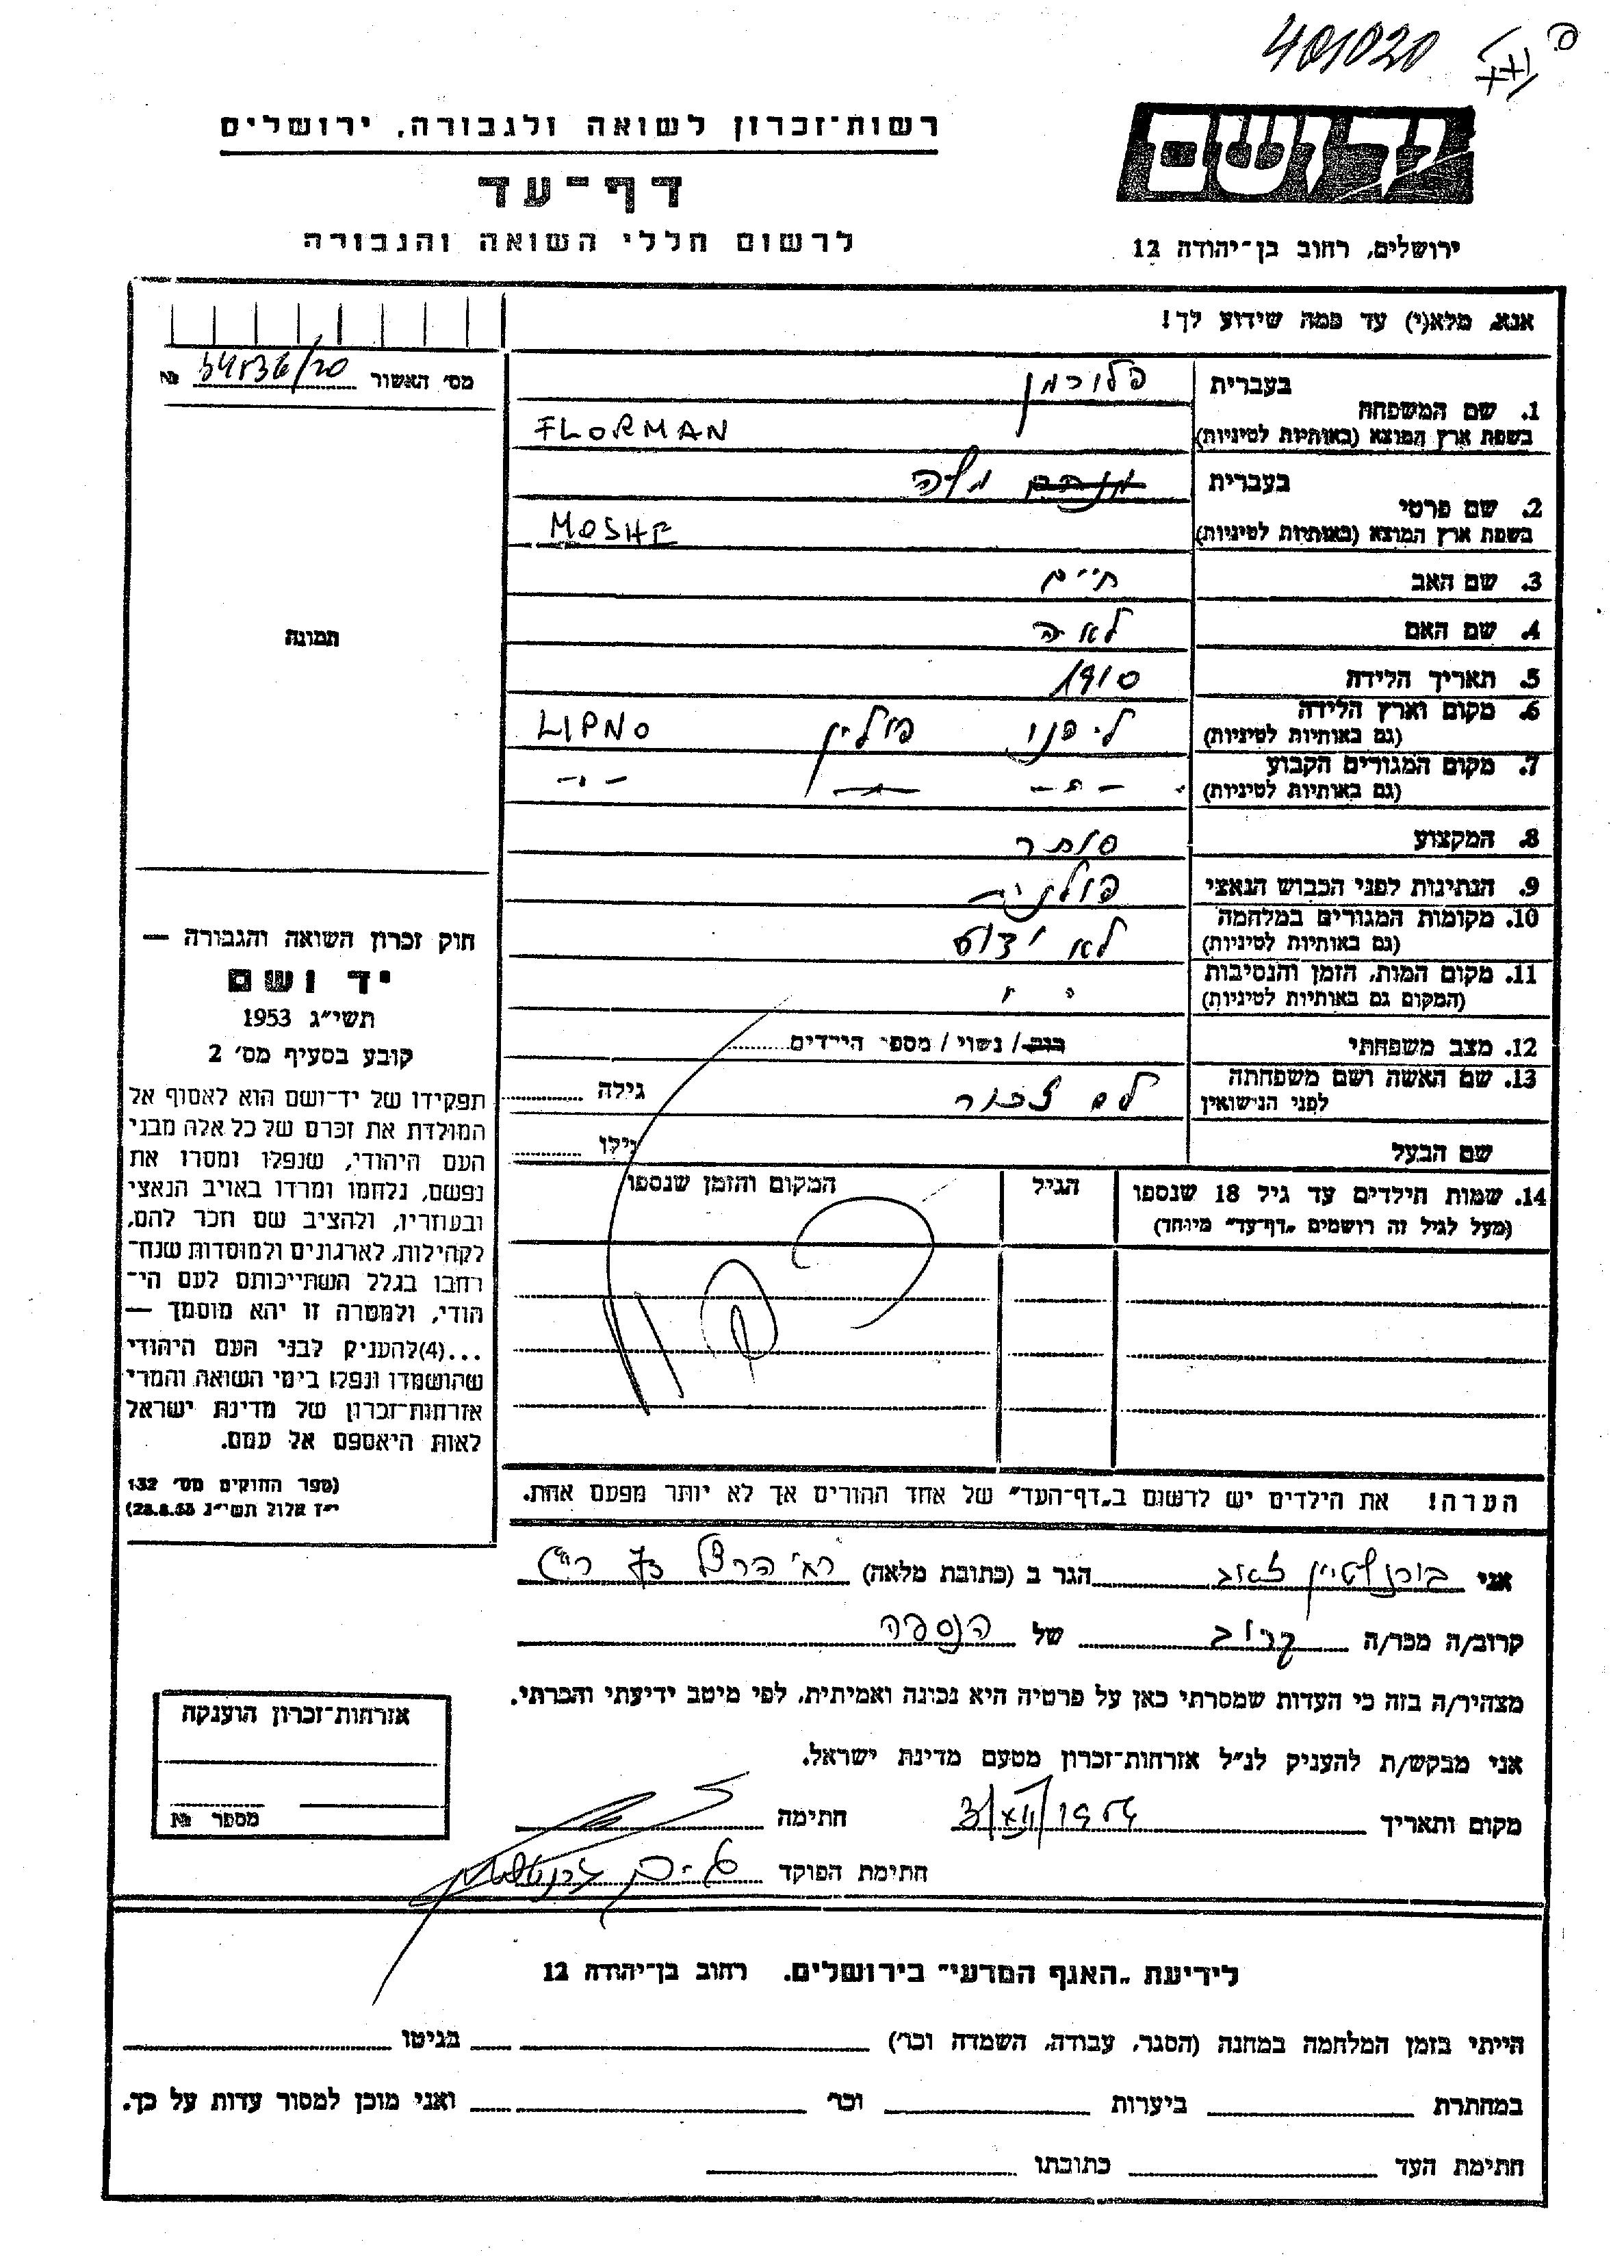 401020
רשות-זכרון לשואה ולגבורה, ירושלים
יד ושם
דף-עד
לרשום חללי השואה והגבורה
ירושלים, רחוב בן-יהודה 12
אנא, מלא(י) עד כמה שידוע לך!
מס' האשור №
1. שם המשפחה
בעברית פלורמן
בשפת ארץ המוצא (באותיות לטיניות) FLORMAN
2. שם פרטי
בעברית משה
בשפת ארץ המוצא (באותיות לטיניות) MOSHE
3. שם האב חיים
4. שם האם לאה
תמונה
5. תאריך הלידה 1910
6. מקום וארץ הלידה ליפנו פולין LIPNO
(גם באותיות לטיניות)
7. מקום המגורים הקבוע -"- -"- -"-
(גם באותיות לטיניות)
8. המקצוע סוחר
9. הנתינות לפני הכבוש הנאצי פולנית
10. מקומות המגורים במלחמה לא ידוע
(גם באותיות לטיניות)
11. מקום המות, הזמן והנסיבות " "
(המקום גם באותיות לטיניות)
12. מצב משפחתי רווק / נשוי / מספר הילדים
13. שם האשה ושם משפחתה לא זכור גילה
לפני הנישואין
שם הבעל גילו
14. שמות הילדים עד גיל 18 שנספו הגיל המקום והזמן שנספו
(מעל לגיל זה רושמים "דף-עד" מיוחד)
הערה! את הילדים יש לרשום ב"דף-העד" של אחד ההורים אך לא יותר מפעם אחת.
חוק זכרון השואה והגבורה —
יד ושם
תשי"ג 1953
קובע בסעיף מס' 2
תפקידו של יד-ושם הוא לאסוף אל
המולדת את זכרם של כל אלה מבני
העם היהודי, שנפלו ומסרו את
נפשם, נלחמו ומרדו באויב הנאצי
ובעוזריו, ולהציב שם וזכר להם,
לקהילות, לארגונים ולמוסדות שנח-
רבו בגלל השתייכותם לעם הי-
הודי, ולמטרה זו יהא מוסמך —
...(4) להעניק לבני העם היהודי
שהושמדו ונפלו בימי השואה והמרי
אזרחות-זכרון של מדינת ישראל
לאות היאספם אל עמם.
(ספר החוקים מס' 132
י"ז אלול תשי"ג 28.8.53)
אני בורנשטיין זאב הגר ב (כתובת מלאה) רח' הרצל
קרוב/ה מכר/ה קרוב של הנספה
מצהיר/ה בזה כי העדות שמסרתי כאן על פרטיה היא נכונה ואמיתית, לפי מיטב ידיעתי והכרתי.
אני מבקש/ת להעניק לנ"ל אזרחות-זכרון מטעם מדינת ישראל.
מקום ותאריך חתימה
חתימת הפוקד
אזרחות-זכרון הוענקה
מספר №
לידיעת "האגף המדעי" בירושלים. רחוב בן-יהודה 12
הייתי בזמן המלחמה במחנה (הסגר, עבודה, השמדה וכו') בגיטו
במחתרת ביערות וכו' ואני מוכן למסור עדות על כך.
חתימת העד כתובתו